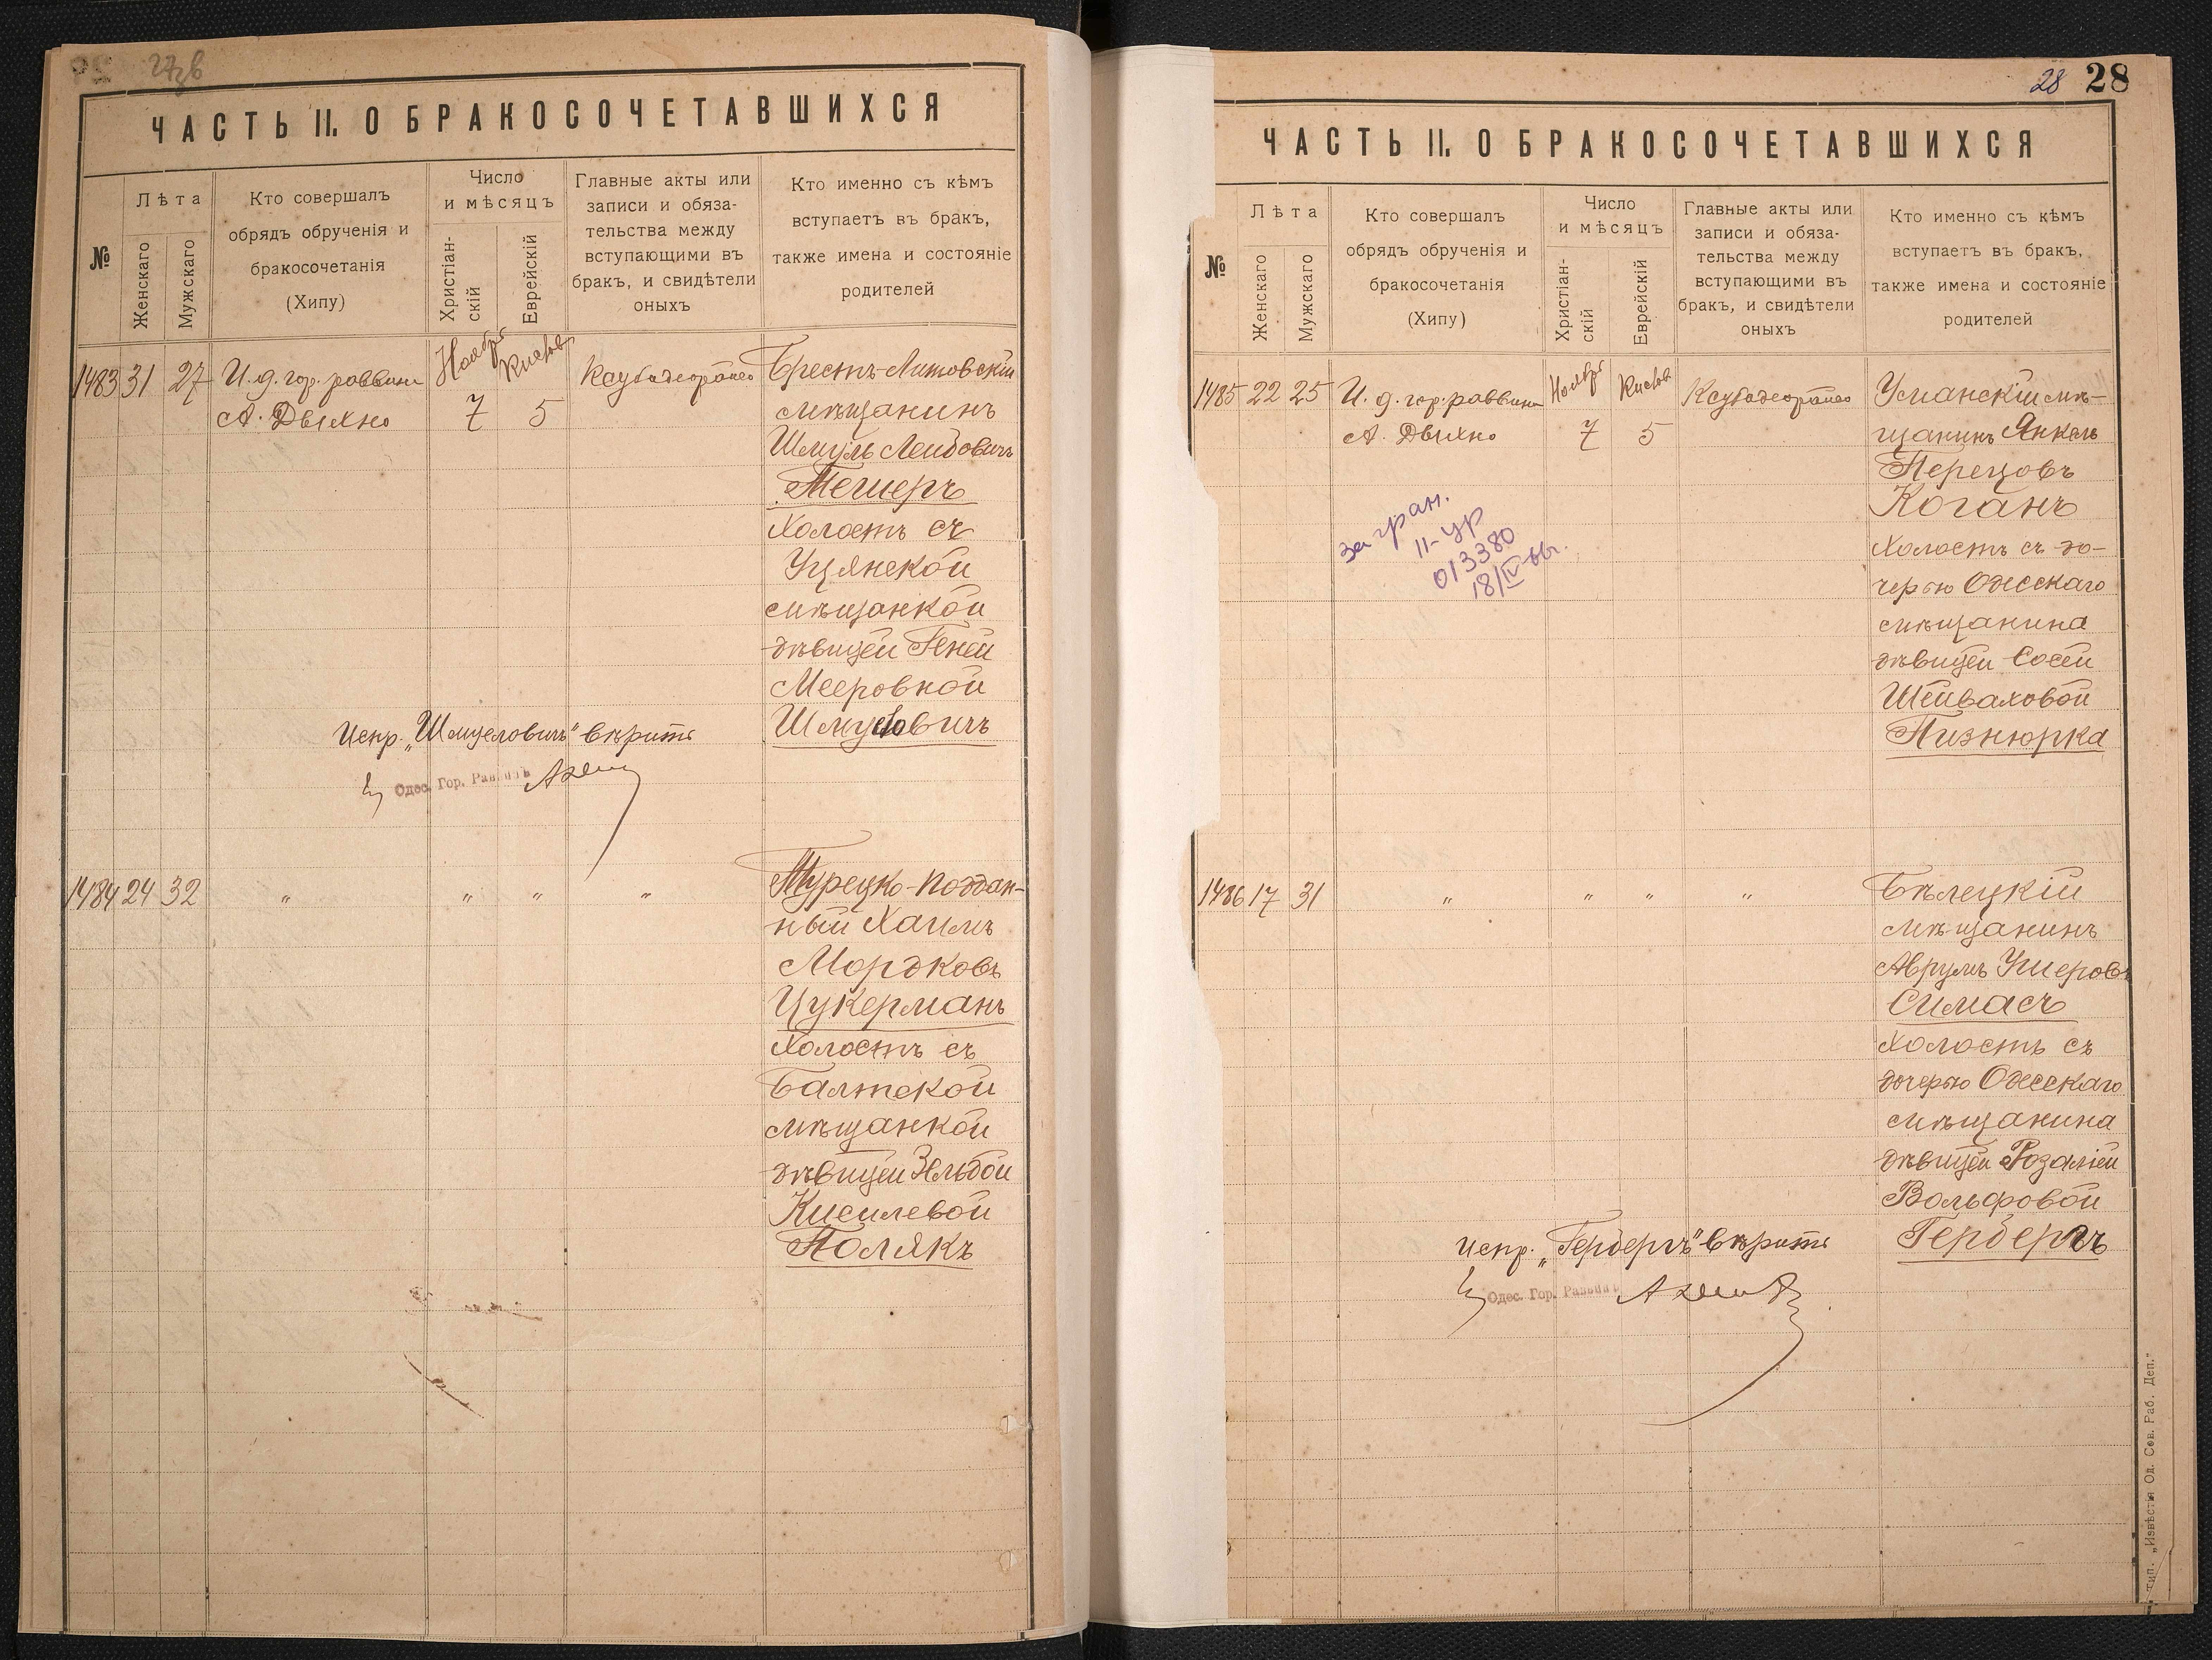 27зв
ЧАСТЬ II. О БРАКОСОЧЕТАВШИХСЯ
№
Лѣта
Женскаго
Мужскаго
Кто совершалъ
обрядъ обрученія и
бракосочетанія
(Хипу)
Число
и мѣсяцъ
Христіан-
скій
Еврейскій
Главные акты или
записи и обяза-
тельства между
вступающими въ
бракъ, и свидѣтели
оныхъ
Кто именно съ кѣмъ
вступаетъ въ бракъ,
также имена и состояніе
родителей
1483 31 27 И. д. гор. раввина Ноябрь Кислев
А. Двыхно 7 5
Брестъ-Литовскій
мѣщанинъ
Шмуль Лейбовичъ
Тешеръ
холостъ съ
Уцянской
мѣщанкой
дѣвицей Геней
Мееровной
Шмуловичъ
Испр. „Шмуеловичъ" вѣрить
Одес. Гор. Раввинъ
1484 24 32 " " " "
Турецко-поддан-
ный Хаимъ
Мордковъ
Цукерманъ
холостъ съ
Балтской
мѣщанкой
дѣвицей Эльдой
Кисилевой
Полякъ
28 28
ЧАСТЬ II. О БРАКОСОЧЕТАВШИХСЯ
№
Лѣта
Женскаго
Мужскаго
Кто совершалъ
обрядъ обрученія и
бракосочетанія
(Хипу)
Число
и мѣсяцъ
Христіан-
скій
Еврейскій
Главные акты или
записи и обяза-
тельства между
вступающими въ
бракъ, и свидѣтели
оныхъ
Кто именно съ кѣмъ
вступаетъ въ бракъ,
также имена и состояніе
родителей
1485 22 25 И. д. гор. раввина Ноябрь Кислев
А. Двыхно 7 5
Уманскій мѣ-
щанинъ Янкель
Перецовъ
Коганъ
холостъ съ до-
черью Одесскаго
мѣщанина
дѣвицей Сосей
Шейваховой
Пизнюрка
за гран.
II-ур
013380
18/IV-
1486 17 31 " " " "
Бѣлецкій
мѣщанинъ
Аврумъ Ушеровъ
Симасъ
холостъ съ
дочерью Одесскаго
мѣщанина
дѣвицей Розаліей
Вольфовой
Герберъ
Испр. „Герберъ" вѣрить
Одес. Гор. Раввинъ
Тип. „Извѣстія Од. Сов. Раб. Деп."